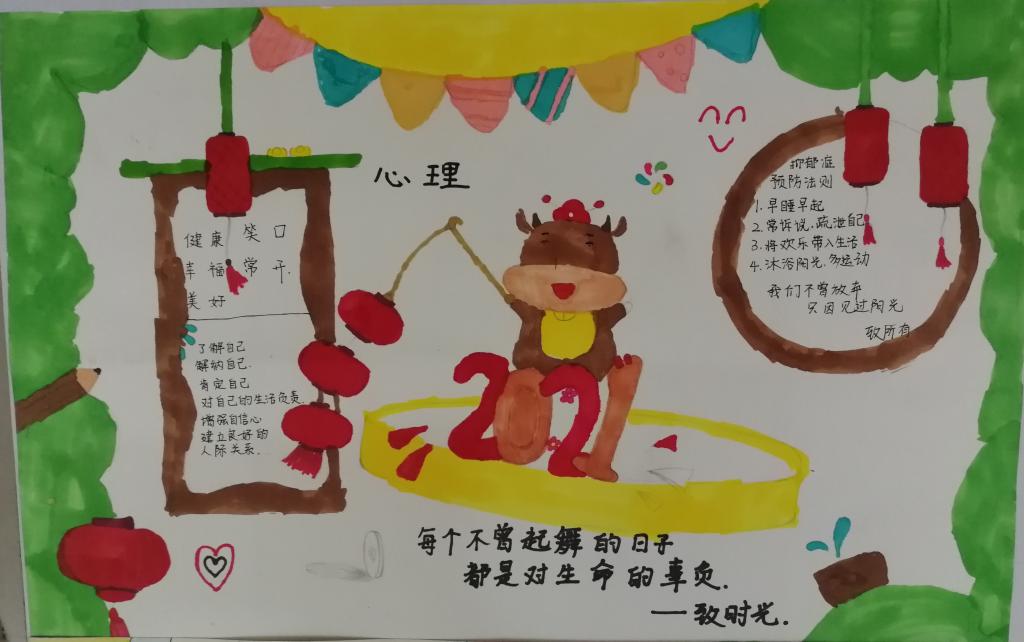 心理
健康 笑口
幸福 常开.
美好
了解自己
解纳自己.
肯定自己
对自己的生活负责.
增强自信心
建立良好的
人际关系.
抑郁症
预防法则
1. 早睡早起
2. 常诉说,疏泄自己
3. 将欢乐带入生活
4. 沐浴阳光,多运动
我们不曾放弃
只因见过阳光
致所有
2021
每个不曾起舞的日子
都是对生命的辜负.
——致时光.